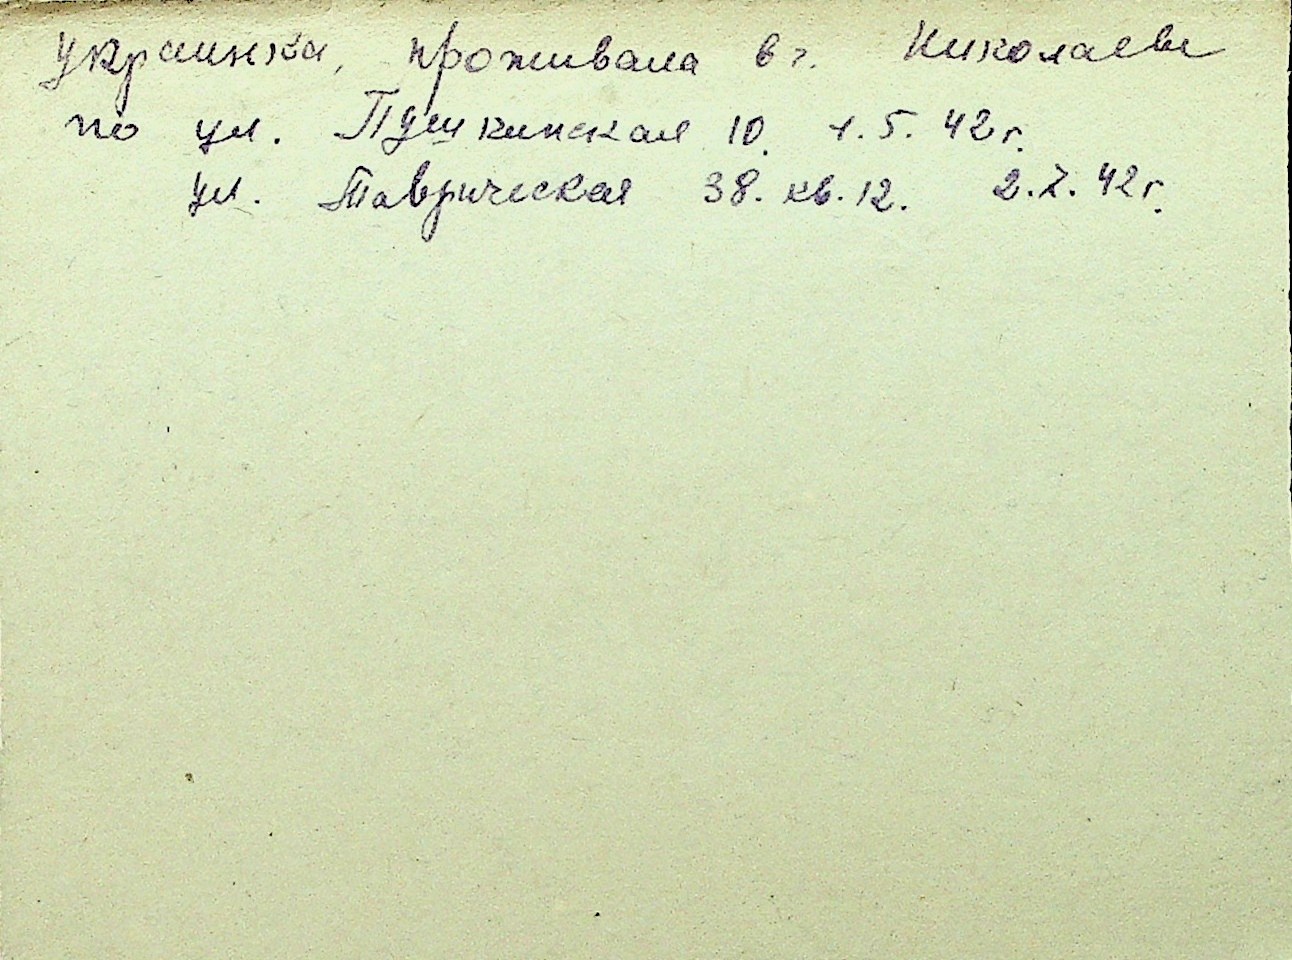 украинка, проживала в г. Николаеве
по ул. Пушкинская 10. 1.5.42г.
ул. Таврическая 38. кв.12. 2.7.42г.